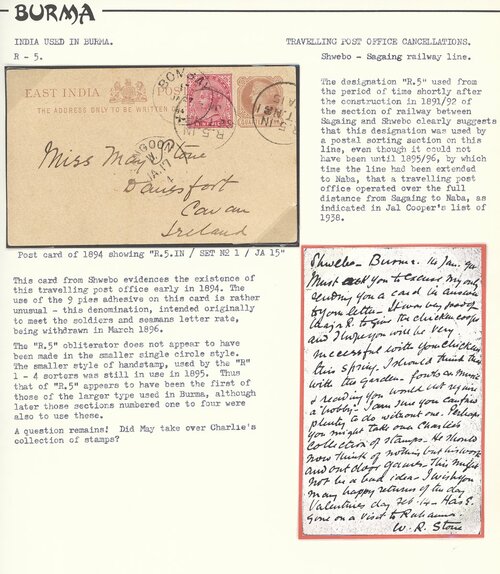 BURMA
INDIA USED IN BURMA.
R - 5.
TRAVELLING POST OFFICE CANCELLATIONS.
Shwebo - Sagaing railway line.
EAST INDIA
POST
THE ADDRESS ONLY TO BE WRITTEN
BOMBAY
R.5.IN
Miss May Stone
Danesfort
Cavan
Ireland
Post card of 1894 showing "R.5.IN / SET Nº 1 / JA 15"
The designation "R.5" used from
the period of time shortly after
the construction in 1891/92 of
the section of railway between
Sagaing and Shwebo clearly suggests
that this designation was used by
a postal sorting section on this
line, even though it could not
have been until 1895/96, by which
time the line had been extended
to Naba, that a travelling post
office operated over the full
distance from Sagaing to Naba, as
indicated in Jal Cooper's list of
1938.
This card from Shwebo evidences the existence of
this travelling post office early in 1894. The
use of the 9 pies adhesive on this card is rather
unusual - this denomination, intended originally
to meet the soldiers and seamans letter rate,
being withdrawn in March 1896.
The "R.5" obliterator does not appear to have
been made in the smaller single circle style.
The smaller style of handstamp, used by the "R"
1 - 4 sorters was still in use in 1895. Thus
that of "R.5" appears to have been the first of
those of the larger type used in Burma, although
later those sections numbered one to four were
also to use those.
A question remains! Did May take over Charlie's
collection of stamps?
Shwebo - Burma. 14 Jan. 94
Must ask you to excuse my only
sending you a card in answer
to your letter - It was very good of
to give the chicken coops
and I hope you will be very
successful with your chickens
this spring. I should think this
with the garden - music
& reading you would not require
a hobby - I am sure you can find
plenty to do without one. Perhaps
you might take over Charlie's
Collection of stamps - He should
now think of nothing but his work
and out door games - This might
not be a bad idea - I wish you
many happy returns of the day
Valentines day Feb. 14 -
Gone on a visit to
W. R. Stone